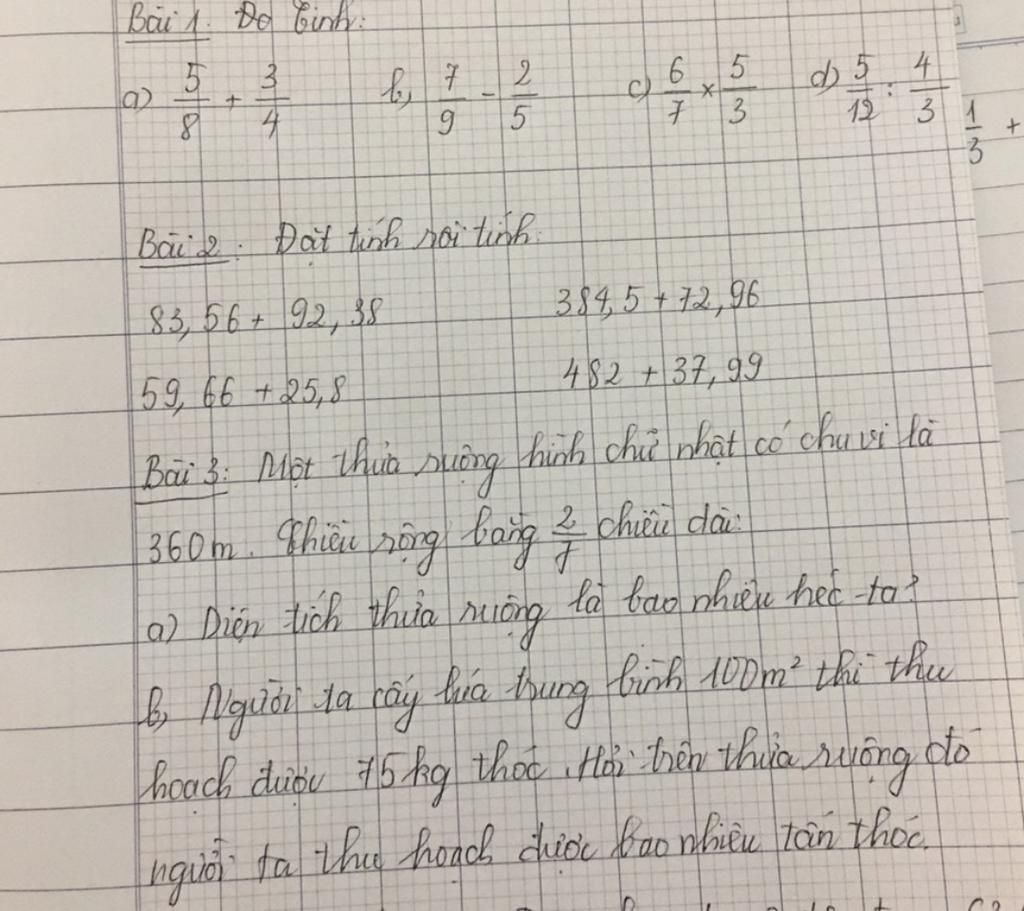 Bài 1. Đo tính:
a) 5/8 + 3/4 b, 7/9 - 2/5 c) 6/7 × 5/3 d) 5/12 : 4/3
1/3 +
Bài 2: Đặt tính rồi tính:
83,56 + 92,38 384,5 + 72,96
59,66 + 25,8 482 + 37,99
Bài 3: Một thửa ruộng hình chữ nhật có chu vi là
360m. Chiều rộng bằng 2/7 chiều dài:
a) Diện tích thửa ruộng là bao nhiêu héc-ta?
b, Người ta cấy lúa trung bình 100m² thì thu
hoạch được 75kg thóc. Hỏi trên thửa ruộng đó
người ta thu hoạch được bao nhiêu tấn thóc.